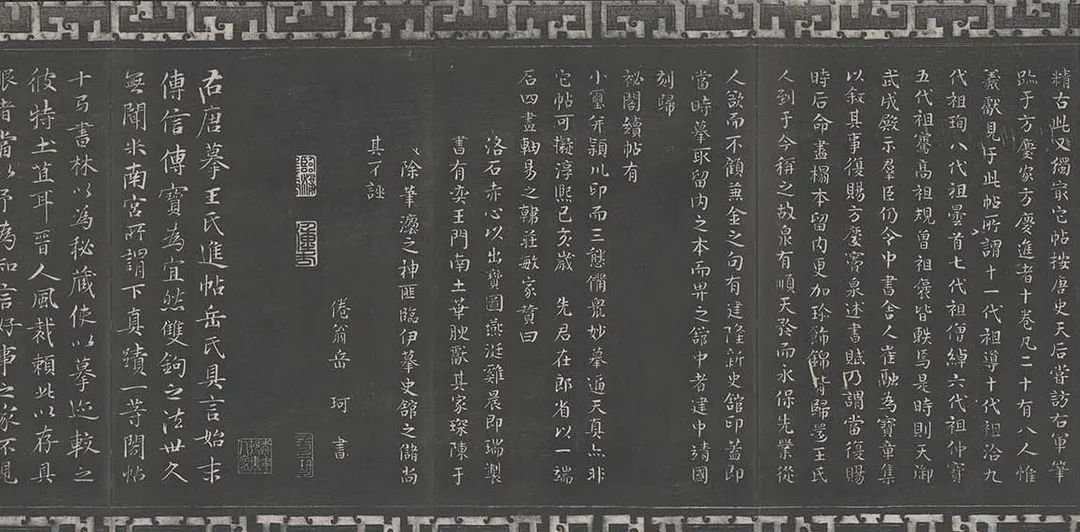 精古此又獨冣它帖按唐史天后嘗訪右軍筆
跡于方慶家方慶進者十卷凡二十有八人惟
羲獻見于此帖所謂十一代祖導十代祖洽九
代祖珣八代祖曇首七代祖僧綽六代祖仲寶
五代祖騫高祖規曾祖褒皆軼焉是時則天御
武成殿示羣臣仍令中書舍人崔融為寶章集
以敘其事復賜方慶竇泉述書賦乃謂當復賜
時后命盡榻本留內更加珍飾錦背歸還王氏
人到于今稱之故泉有順天矜而永保先業從
人欲而不顧兼金之句有建隆新史館印蓋即
當時摹取留內之本而畀之館中者建中靖國
刻歸
祕閣續帖有
小璽并潁川印而三態備衆妙摹逼天真亦非
它帖可擬淳熙己亥歲 先君在郎省以一端
石四畫軸易之韓莊敏家贊曰
洛石赤心以出寶圖燕涎雞晨即瑞製
書有奕王門南土華腴厭其家琛陳于
除筆濡之神匪臨伊摹史館之儲尚
其不誣
倦翁岳珂書
右唐摹王氏進帖岳氏具言始末
傳信傳寶為宜然雙鉤之法世久
無聞米南宮所謂下真蹟一等閣帖
十弓書林以為秘藏使以摹迹較之
彼特土苴耳晉人風裁賴此以存具
眼者當以予為知言好事之家不見